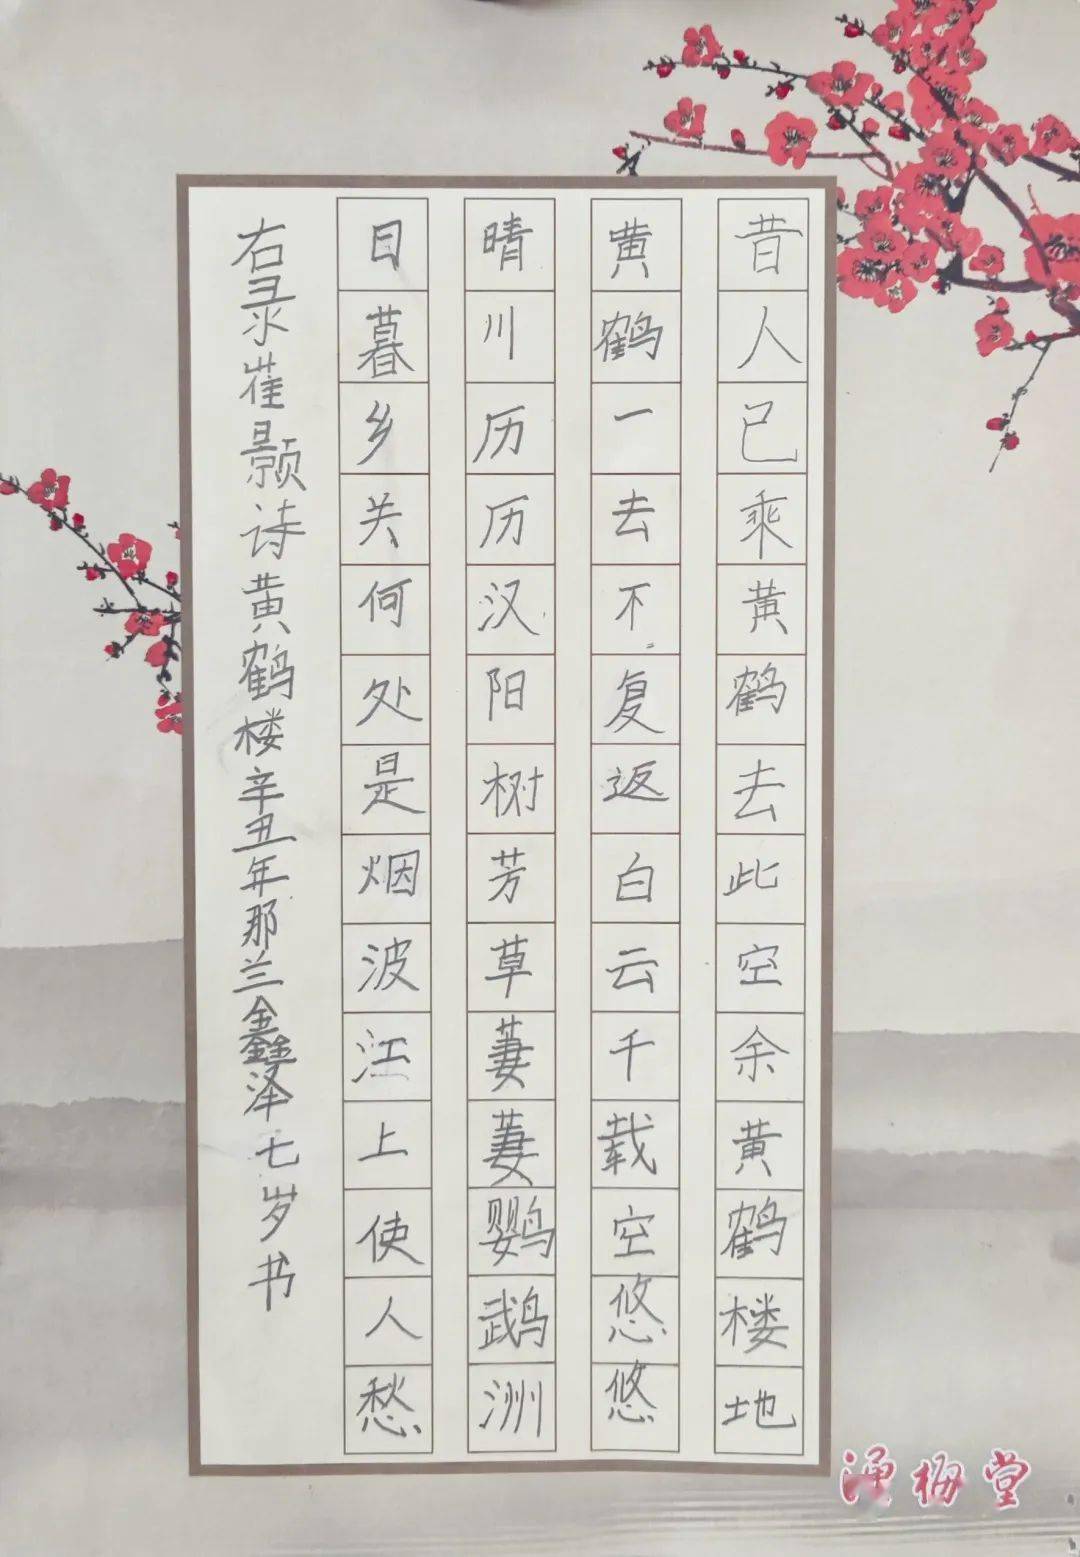 昔人已乘黄鹤去此空余黄鹤楼地
黄鹤一去不复返白云千载空悠悠
晴川历历汉阳树芳草萋萋鹦鹉洲
日暮乡关何处是烟波江上使人愁
右录崔颢诗黄鹤楼辛丑年那兰鑫泽七岁书